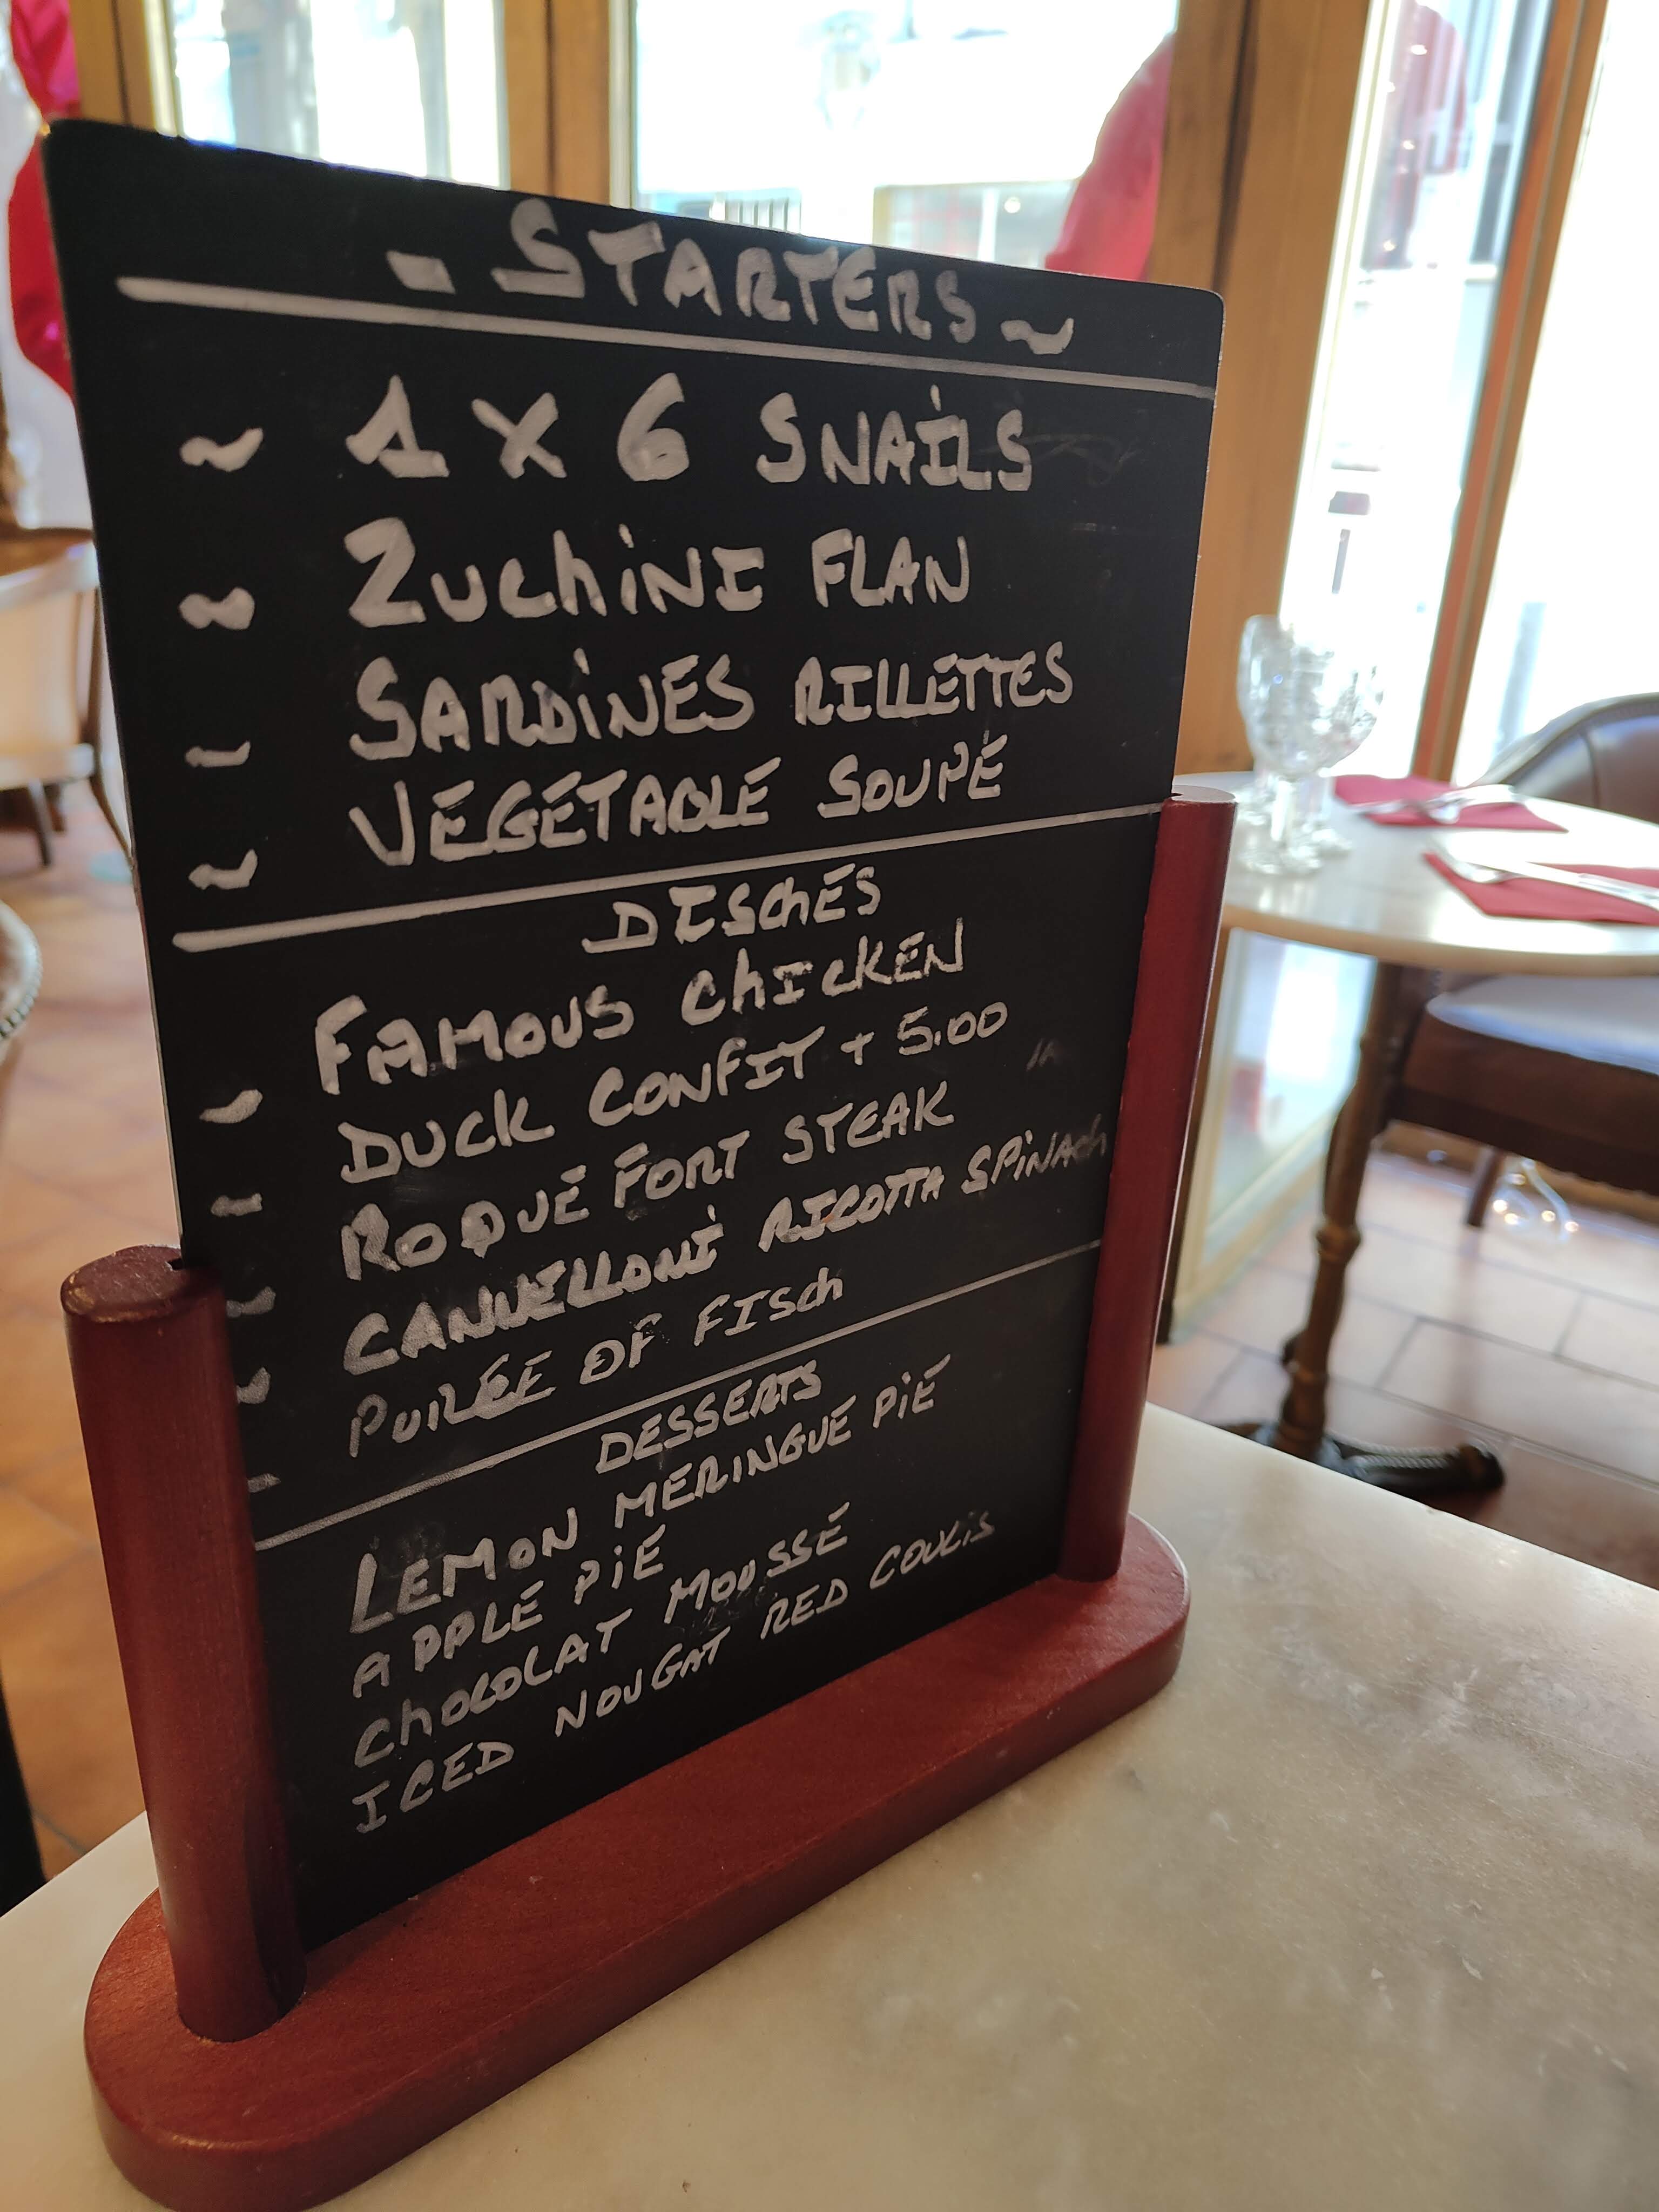 - STARTERS ~
~ 1 X 6 SNAILS
~ ZUCHINI FLAN
- SARDINES RILLETTES
~ VEGETABLE SOUPE
DISCHES
~ FAMOUS CHICKEN
- DUCK CONFIT + 5.00
~ ROQUEFORT STEAK
~ CANNELLONI RICOTTA SPINACH
- PURÉE OF FISCH
DESSERTS
LEMON MERINGUE PIE
APPLE PIE
CHOCOLAT MOUSSE
ICED NOUGAT RED COULIS